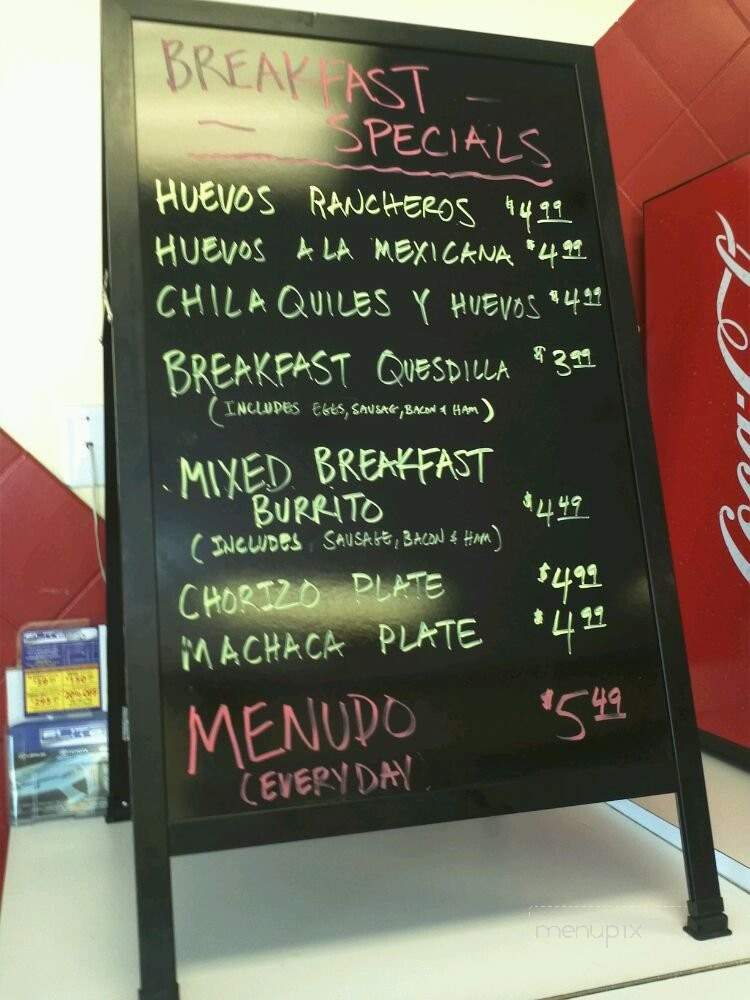 BREAKFAST -
- SPECIALS
HUEVOS RANCHEROS $4.99
HUEVOS A LA MEXICANA $4.99
CHILAQUILES Y HUEVOS $4.99
BREAKFAST QUESDILLA $3.99
(INCLUDES EGGS, SAUSAGE, BACON & HAM)
MIXED BREAKFAST
BURRITO $4.49
(INCLUDES SAUSAGE, BACON & HAM)
CHORIZO PLATE $4.99
MACHACA PLATE $4.99
MENUDO $5.49
(EVERYDAY
Coca-Co
menupix